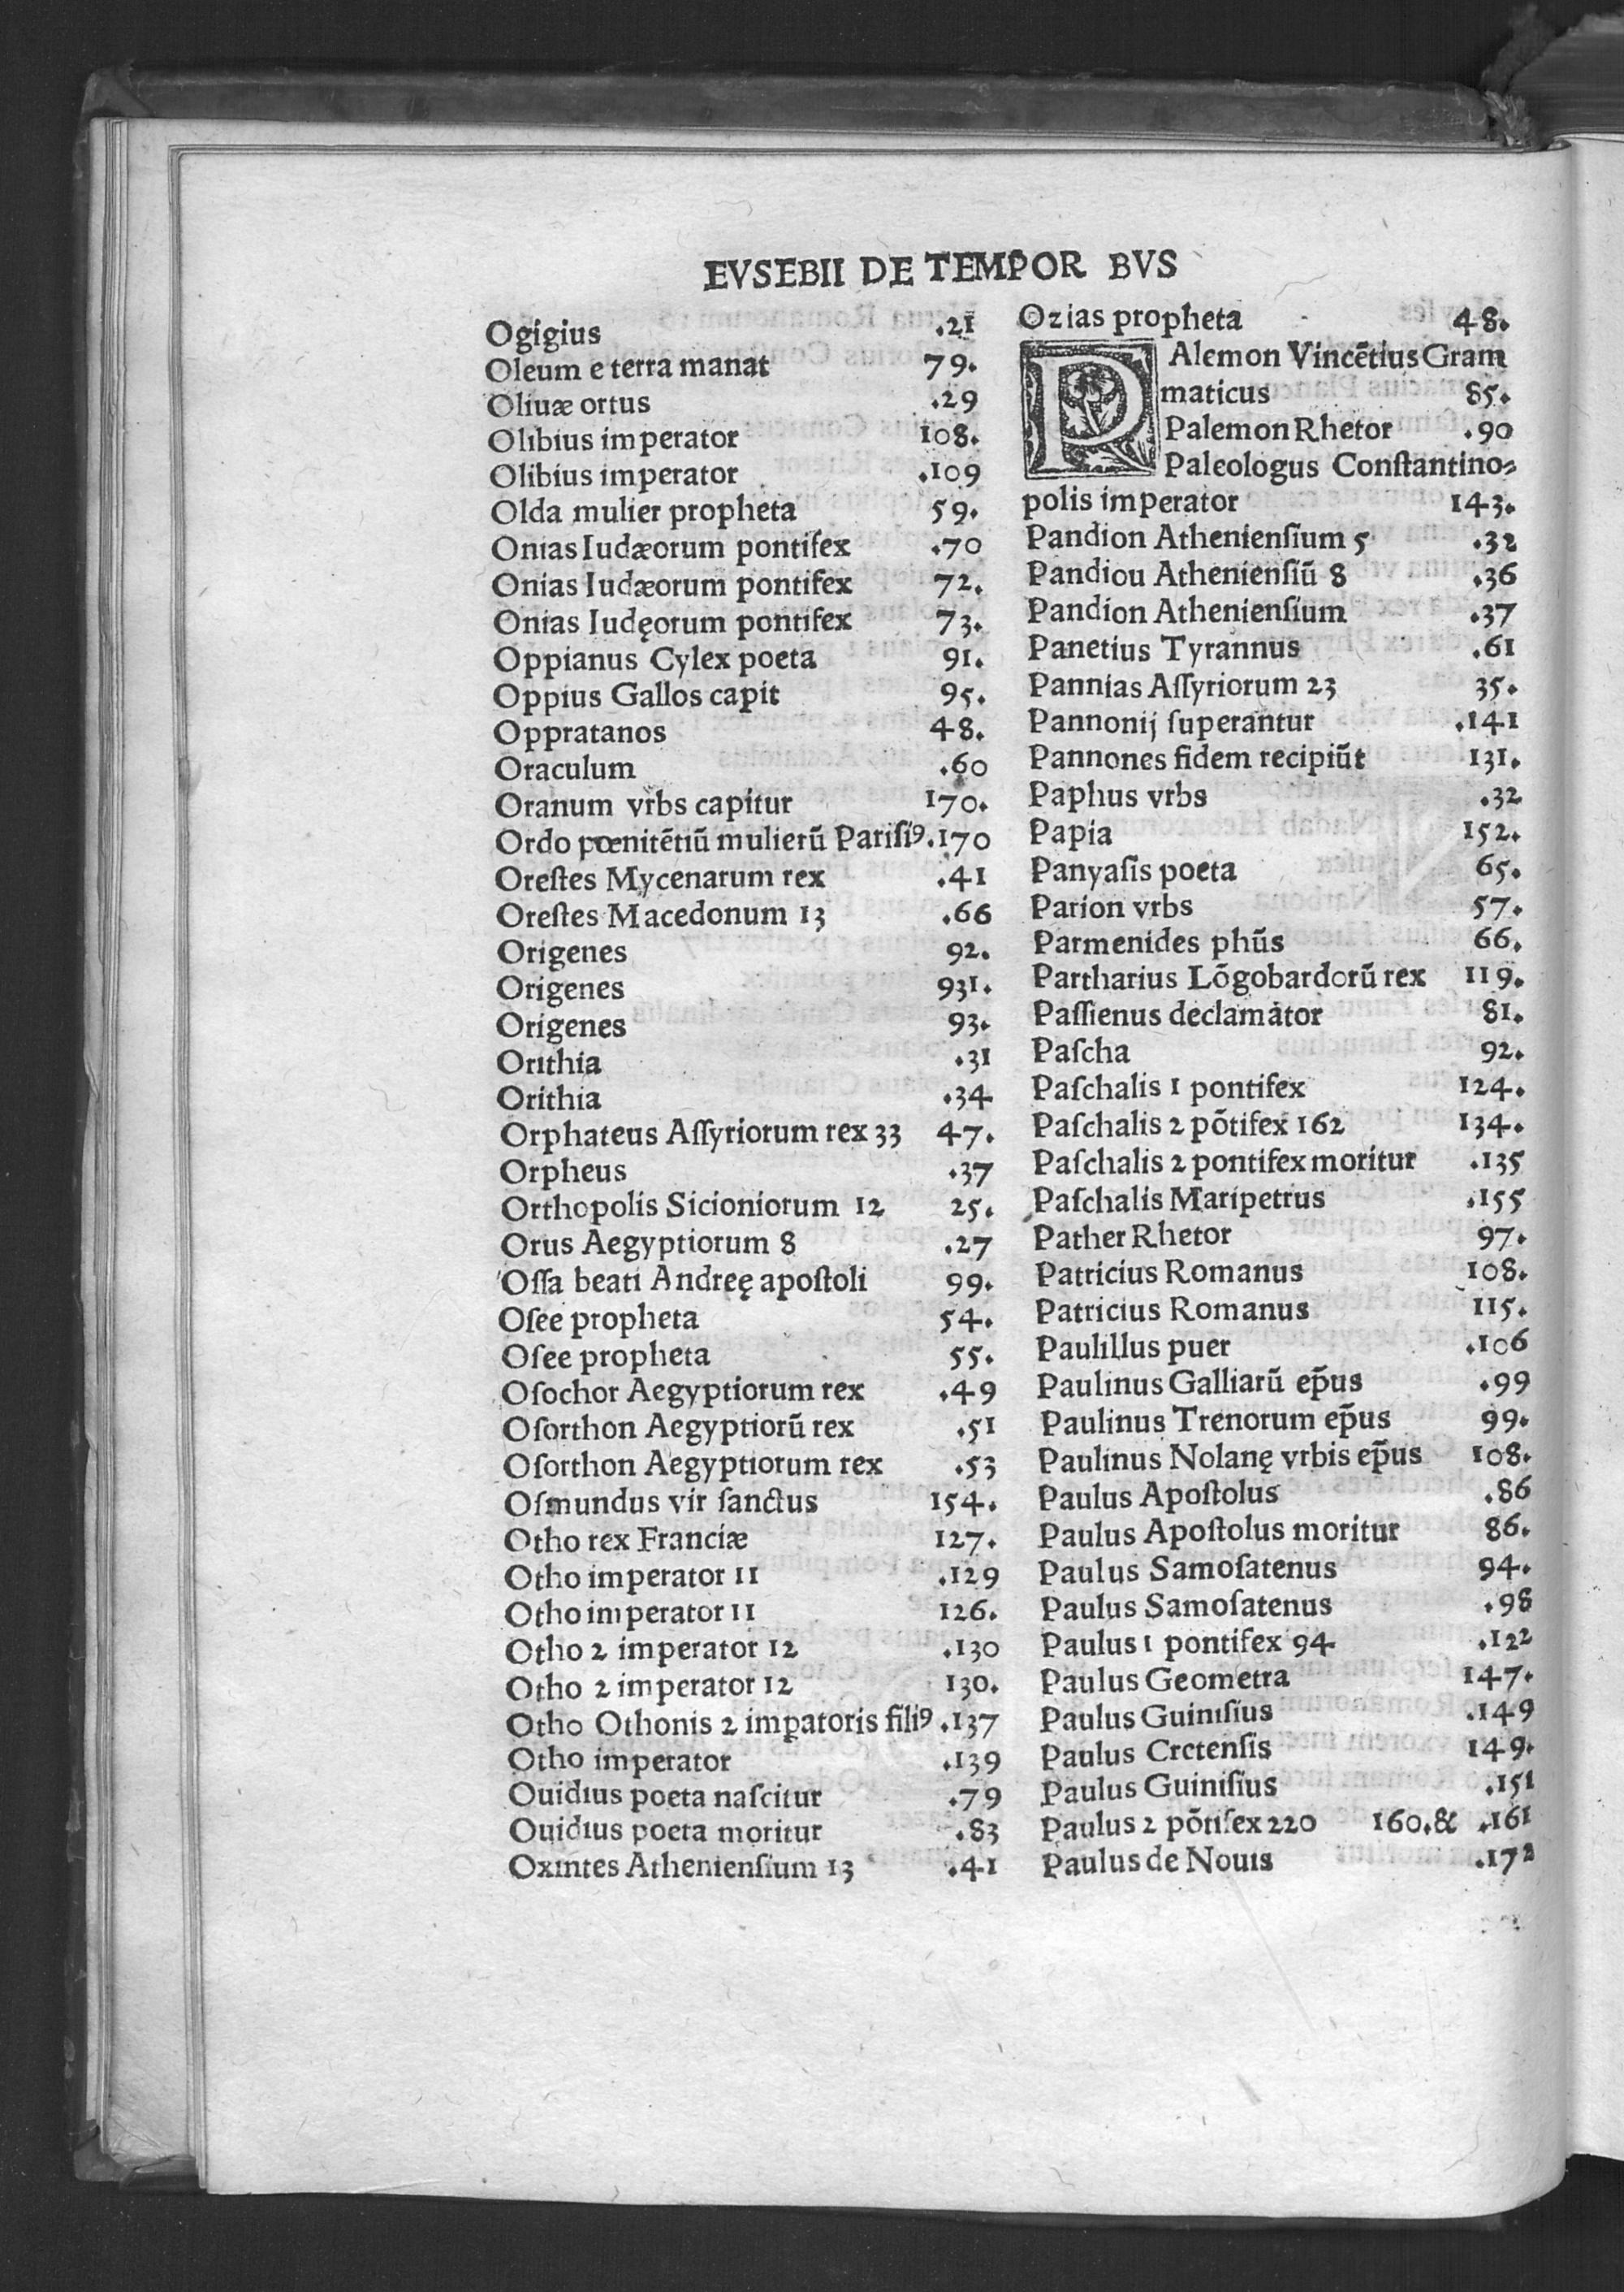 EVSEBII DE TEMPOR BVS
Ogigius .21
Oleum e terra manat 79.
Oliuæ ortus .29
Olibius imperator 108.
Olibius imperator .109
Olda mulier propheta 59.
Onias Iudæorum pontifex .70
Onias Iudæorum pontifex 72.
Onias Iudęorum pontifex 73.
Oppianus Cylex poeta 91.
Oppius Gallos capit 95.
Oppratanos 48.
Oraculum .60
Oranum vrbs capitur 170.
Ordo pœnitẽtiũ mulierũ Pariſiꝰ .170
Oreſtes Mycenarum rex .41
Oreſtes Macedonum 13 .66
Origenes 92.
Origenes 931.
Origenes 93.
Orithia .31
Orithia .34
Orphateus Aſſyriorum rex 33 47.
Orpheus .37
Orthopolis Sicioniorum 12 25.
Orus Aegyptiorum 8 .27
Oſſa beati Andreę apoſtoli 99.
Oſee propheta 54.
Oſee propheta 55.
Oſochor Aegyptiorum rex .49
Oſorthon Aegyptiorũ rex .51
Oſorthon Aegyptiorum rex .53
Oſmundus vir ſanctus 154.
Otho rex Franciæ 127.
Otho imperator 11 .129
Otho imperator 11 126.
Otho 2 imperator 12 .130
Otho 2 imperator 12 130.
Otho Othonis 2 imꝑatoris filiꝰ .137
Otho imperator .139
Ouidius poeta naſcitur .79
Ouidius poeta moritur .83
Oxintes Athenienſium 13 .41
Ozias propheta 48.
PAlemon Vincẽtius Gram
maticus 85.
Palemon Rhetor .90
Paleologus Conſtantino⸗
polis imperator 143.
Pandion Athenienſium 5 .32
Pandiou Athenienſiũ 8 .36
Pandion Athenienſium .37
Panetius Tyrannus .61
Pannias Aſſyriorum 23 35.
Pannonij ſuperantur .141
Pannones fidem recipiũt 131.
Paphus vrbs .32
Papia 152.
Panyaſis poeta 65.
Parion vrbs 57.
Parmenides phũs 66.
Partharius Lõgobardorũ rex 119.
Paſſienus declamator 81.
Paſcha 92.
Paſchalis 1 pontifex 124.
Paſchalis 2 põtifex 162 134.
Paſchalis 2 pontifex moritur .135
Paſchalis Maripetrus .155
Pather Rhetor 97.
Patricius Romanus 108.
Patricius Romanus 115.
Paulillus puer .106
Paulinus Galliarũ ep̃us .99
Paulinus Trenorum ep̃us 99.
Paulinus Nolanę vrbis ep̃us 108.
Paulus Apoſtolus .86
Paulus Apoſtolus moritur 86.
Paulus Samoſatenus 94.
Paulus Samoſatenus .98
Paulus 1 pontifex 94 .122
Paulus Geometra 147.
Paulus Guiniſius .149
Paulus Cretenſis 149.
Paulus Guiniſius .151
Paulus 2 põtifex 220 160.& .161
Paulus de Nouis .172